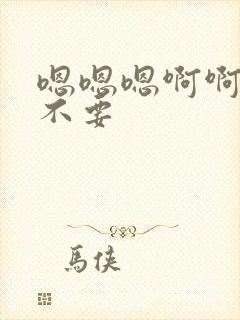 嗯嗯嗯啊啊
不要
馬俠